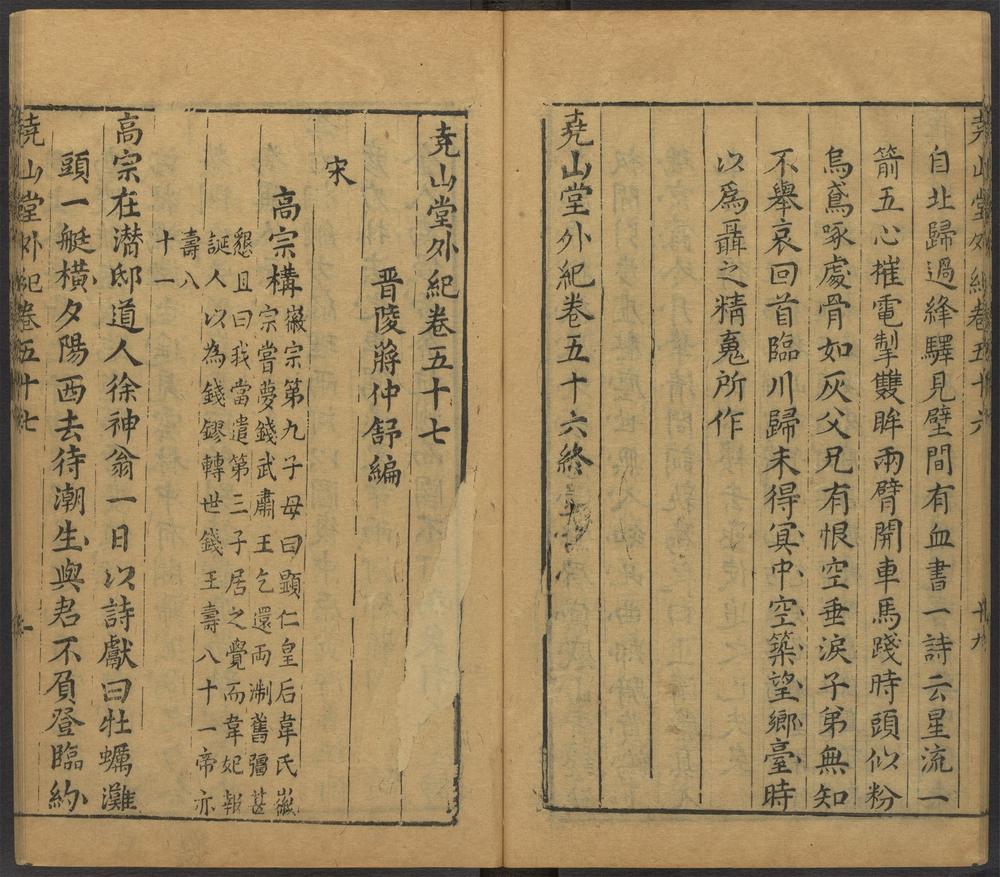 堯山堂外紀卷五十六 廿九
自北歸過絳驛見壁間有血書一詩云星流一
箭五心摧電掣雙眸兩臂開車馬踐時頭似粉
烏鳶啄處骨如灰父兄有恨空垂淚子弟無知
不舉哀回首臨川歸未得冥中空築望鄉臺時
以爲聶之精䰟所作
堯山堂外紀卷五十六終
堯山堂外紀卷五十七
晋陵蔣仲舒編
宋
高宗構
徽宗第九子母曰顯仁皇后韋氏徽
宗嘗夢錢武肅王乞還兩淛舊彊甚
懇且曰我當遣第三子居之覺而韋妃報
誕人以為錢鏐轉世錢王壽八十一帝亦
壽八
十一
高宗在潛邸道人徐神翁一日以詩獻曰牡蠣灘
頭一艇橫夕陽西去待潮生與君不負登臨約
堯山堂外紀卷五十七 一